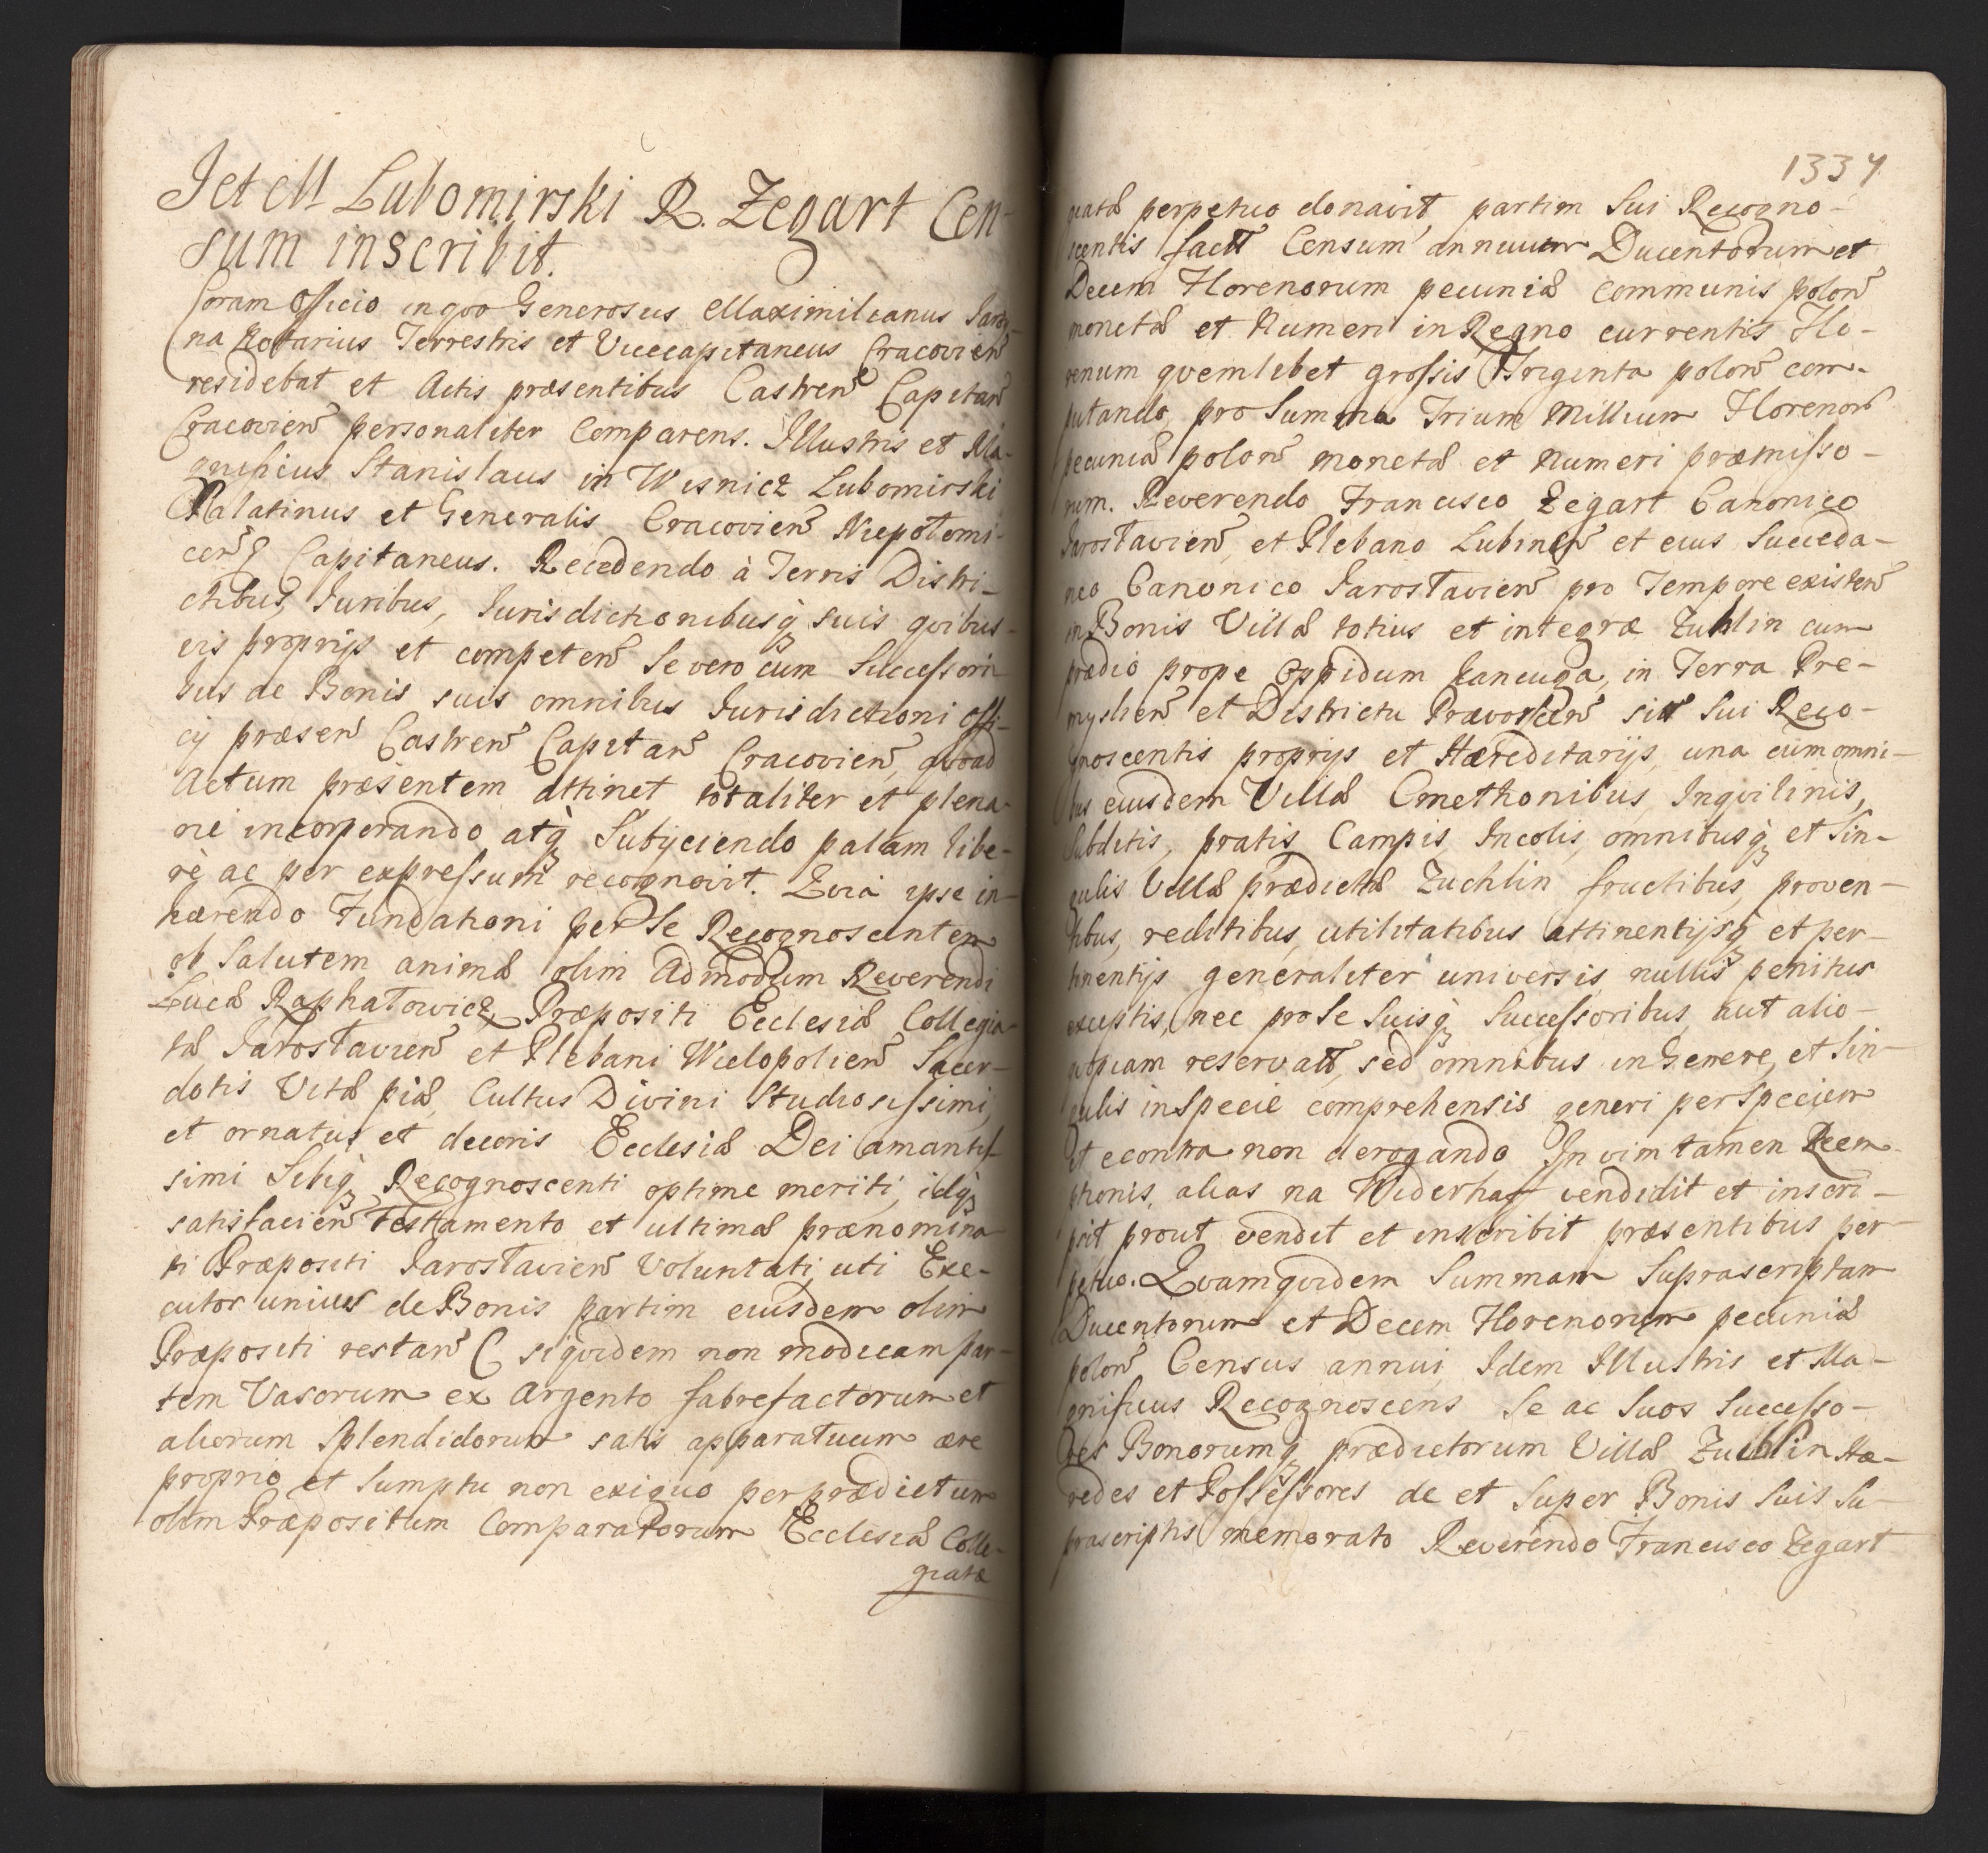 J et M Lubomirski R. Zegart Cen-
sum inscribit.
Coram Officio in quo Generosus Maximilianus Jaro-
na Notarius Terrestris et Vicecapitaneus Cracovien
residebat et Actis præsentibus Castren Capitan
Cracovien personaliter Comparens. Illustris et Ma-
gnificus Stanislaus in Wisnicz Lubomirski
Palatinus et Generalis Cracovien Niepolomi-
cenq Capitaneus. Recedendo à Terris Distri-
ctibus, Juribus, Jurisdictionibusq suis quibus-
vis proprijs et competen Se vero cum Successori-
bus de Bonis suis omnibus Jurisdictioni Offi-
cij præsen Castren Capitan Cracovien, quoad
Actum præsentem attinet totaliter et plena-
rie incorporando atq Subijciendo palam libe-
rè ac per expressum recognovit. Quia ipse in-
hærendo Fundationi per Se Recognoscentem
ob Salutem animæ olim Admodum Reverendi
Lucæ Raphałowicz, Præpositi Ecclesiæ Collegia-
tæ Jarosławien et Plebani Wielopolien Sacer-
dotis Vitæ piæ, Cultus Divini Studiosissimi,
et ornatus et decoris Ecclesiæ Dei amantis-
simi Sibiq Recognoscenti optime meriti, idq
satisfacien Testamento et ultimæ prænomina-
ti Præpositi Jarosławien Voluntati, uti Exe-
cutor unius de Bonis partim eiusdem olim
Præpositi restan ( siquidem non modicam par-
tem Vasorum ex Argento fabrefactorum et
aliorum Splendidorum satis apparatuum ære
proprio et Sumptu non exiguo per prædictum
olim Præpositum Comparatorum Ecclesiæ Colle-
giatæ
1337
giatæ perpetuo donavit, partim Sui Recogno-
scentis fact Censum annuum Ducentorum et
Decem Florenorum pecuniæ communis polon
monetæ et Numeri in Regno currentis Flo-
renum quemlibet grossis Triginta polon com-
putando, pro Summa Trium Millium Florenor
pecuniæ polon monetæ et Numeri præmisso-
rum. Reverendo Francisco Zegart Canonico
Jarosławien, et Plebano Lubinen et eius Succeda-
neo Canonico Jarosławien pro Tempore existen
in Bonis Villæ totius et integræ Zuklin cum
prædio prope Oppidum Kancuga, in Terra Pre-
myslien et Districtu Prævorscen sit Sui Reco-
gnoscentis proprijs et Hæreditarijs, una cum omni-
bus eiusdem Villæ Cmethonibus, Inquilinis,
Subditis, pratis, Campis, Incolis, omnibusq et Sin-
gulis Villæ prædictæ Zuchlin fructibus, proven-
tibus, reditibus, utilitatibus attinentijsq et per-
tinentijs generaliter universis, nullis penitus
exceptis, nec pro Se Suisq Successoribus, aut alio-
quopiam reservatt, sed omnibus in Genere, et Sin-
gulis in Specie comprehensis generi per Speciem
et econtra non derogando. In vim tamen Reem-
ptionis, alias na Widerhaff vendidit et inscri-
psit prout vendit et inscribit præsentibus per-
petuo. Quamquidem Summam Suprascriptam
Ducentorum et Decem Florenorum pecuniæ
polon Census annui, Idem Illustris et Ma-
gnificus Recognoscens Se ac Suos Successo-
res Bonorumq prædictorum Villæ Zuchlin Hæ-
redes et Possessores de et Super Bonis Suis Su-
prascriptis memorato Reverendo Francisco Zegart